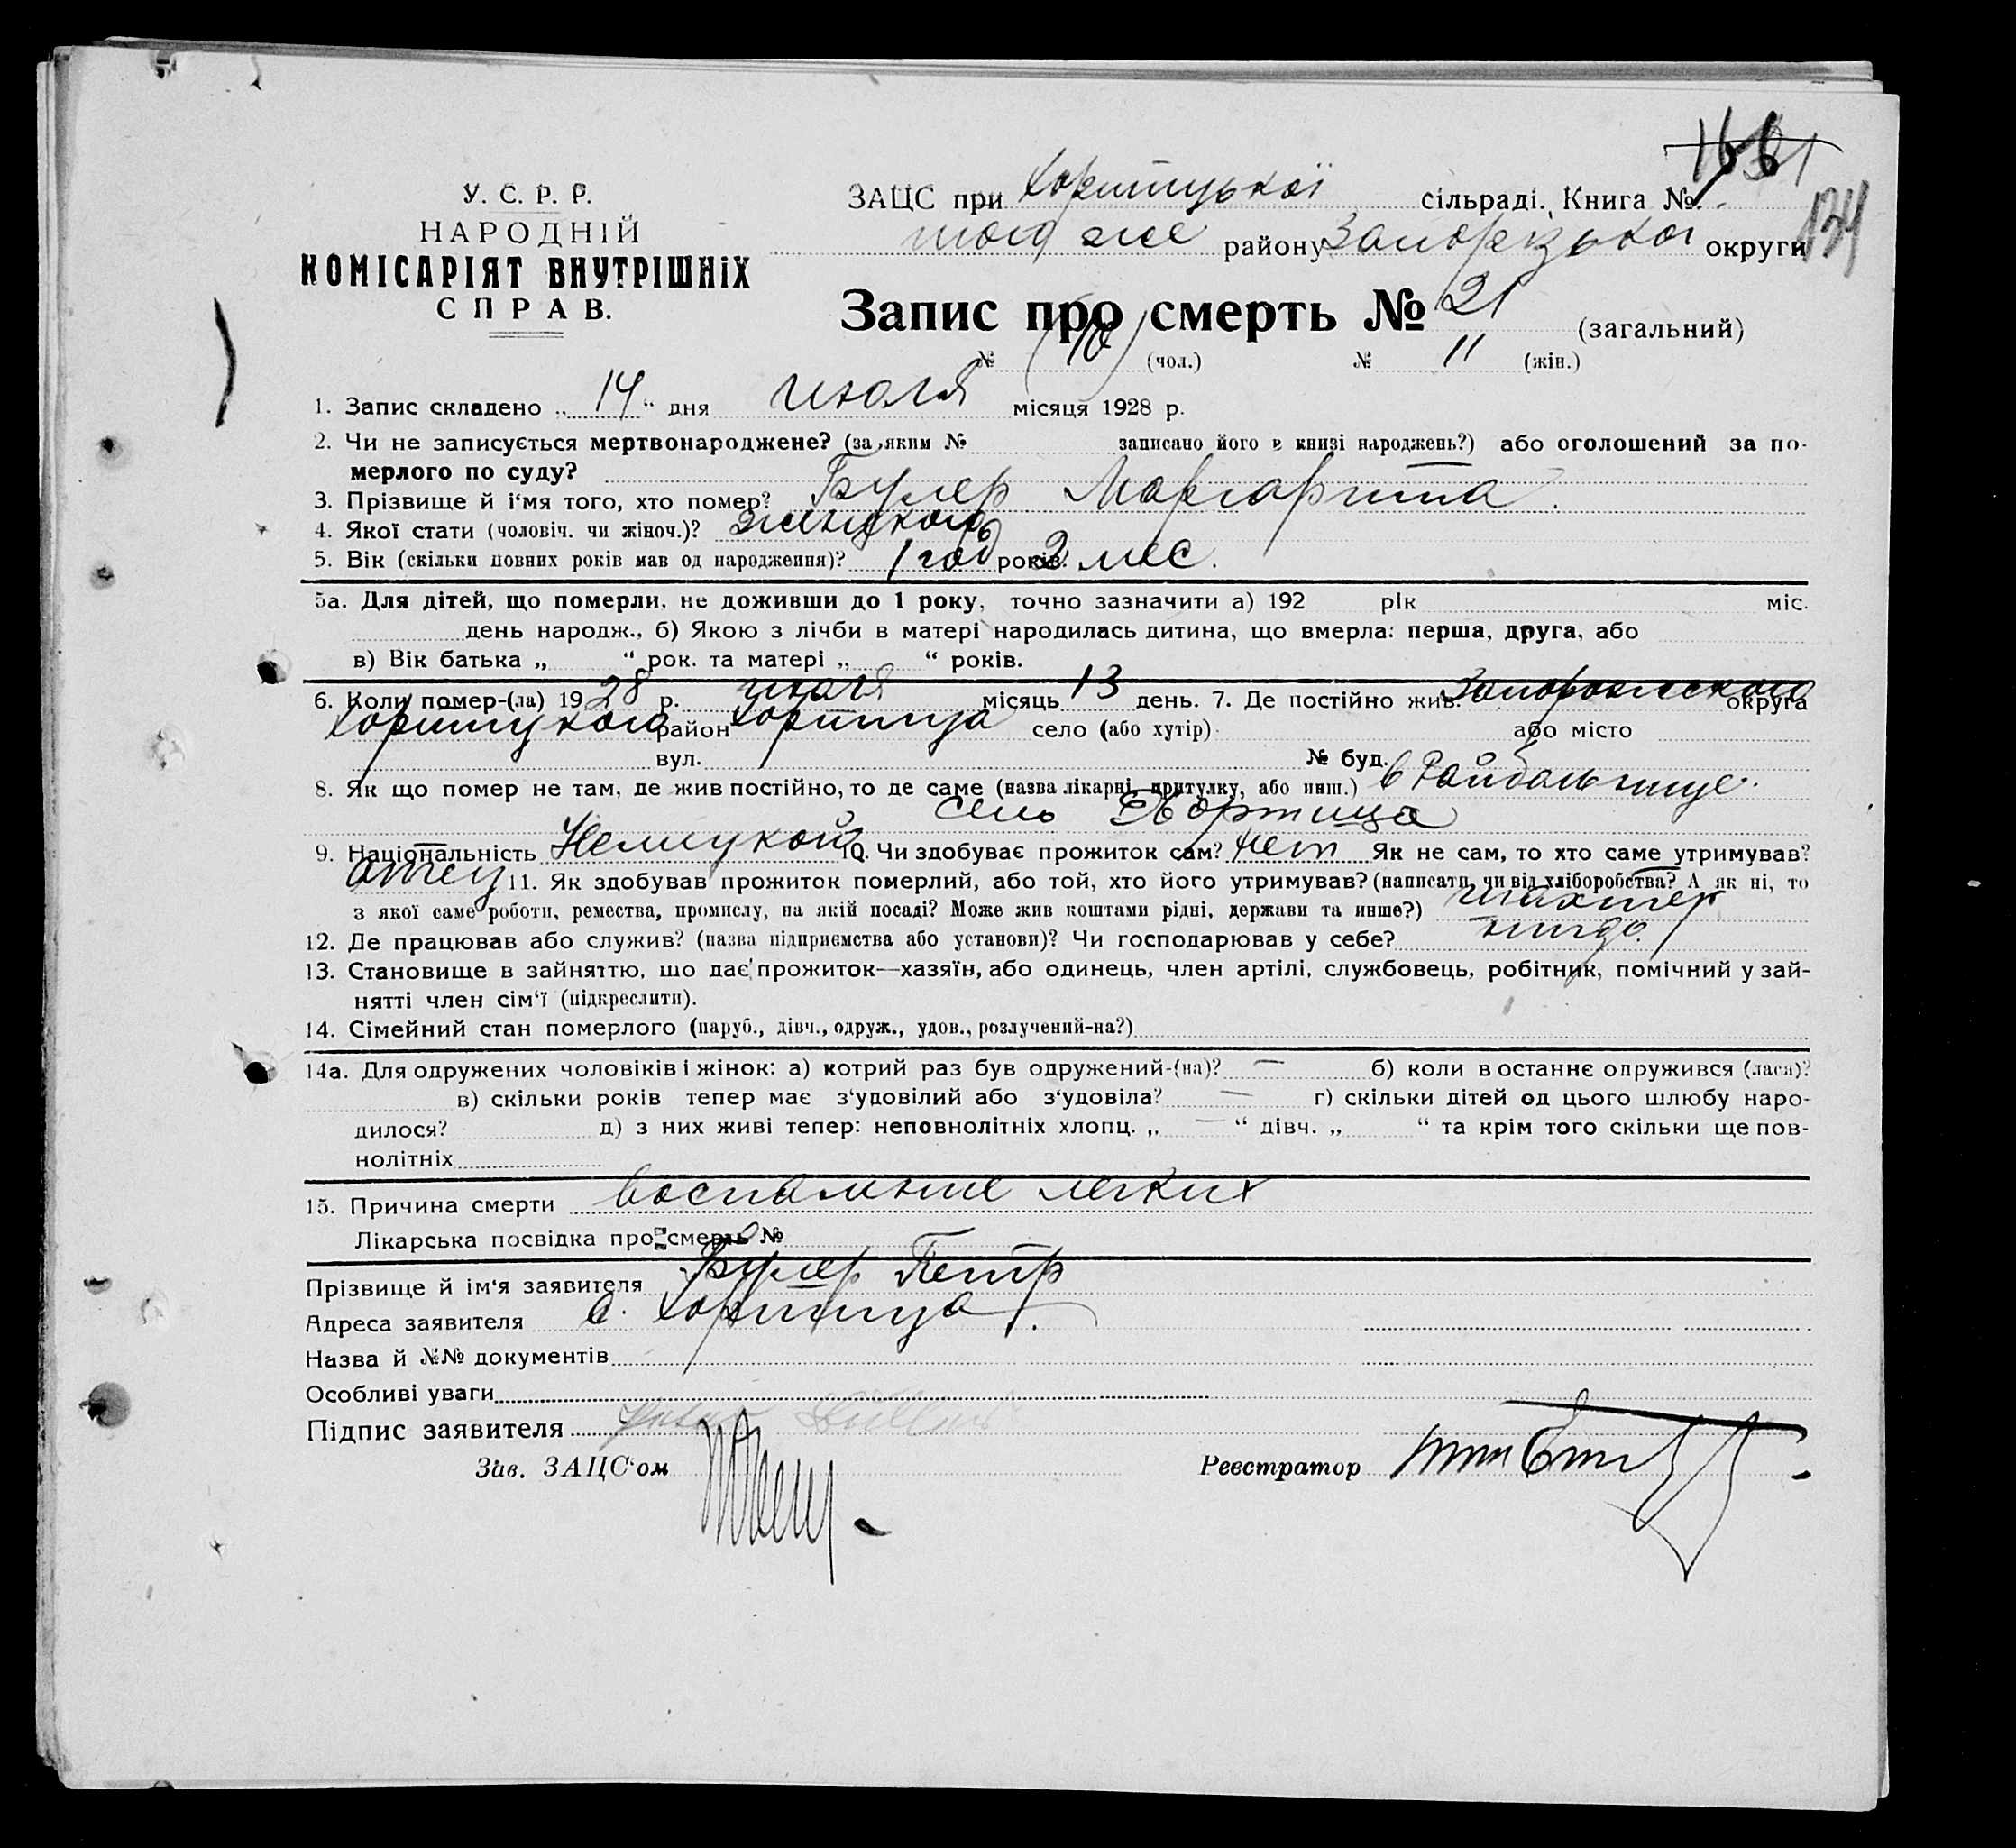 131
134
У. С. Р. Р.
НАРОДНІЙ
КОМІСАРІЯТ ВНУТРІШНІХ
СПРАВ.
ЗАЦС при Хортицької сільраді. Книга №
того же району Запорізької округи
Запис про смерть № 21 (загальний)
№ (10) (чол.) № 11 (жін.)
1. Запис складено „ 14 “ дня июля місяця 1928 р.
2. Чи не записується мертвонароджене? (за яким № записано його в книзі народжень?) або оголошений за по-
мерлого по суду? —
3. Прізвище й і'мя того, хто помер? Булер Маргарита.
4. Якої стати (чоловіч. чи жіноч.)? женского
5. Вік (скільки повних років мав од народження)? 1 год років. 2 мес.
5а. Для дітей, що померли, не доживши до 1 року, точно зазначити а) 192 рік міс.
день народж., б) Якою з лічби в матері народилась дитина, що вмерла: перша, друга, або
в) Вік батька „ “ рок. та матері „ “ років.
6. Коли помер-(ла) 1928 р. июля місяць 13 день. 7. Де постійно жив. Запорожского округа
Хортицкого район Хортица село (або хутір) або місто
вул. № буд.
8. Як що помер не там, де жив постійно, то де саме (назва лікарні, притулку, або инш.) в Райбольнице.
село Хортица
9. Національність Немецкой 10. Чи здобуває прожиток сам? нет Як не сам, то хто саме утримував?
отец 11. Як здобував прожиток померлий, або той, хто його утримував? (написати, чи від хліборобства? А як ні, то
з якої саме роботи, ремества, промислу, на якій посаді? Може жив коштами рідні, держави та инше?) шахтер
12. Де працював або служив? (назва підприємства або установи)? Чи господарював у себе?
13. Становище в зайняттю, що дає прожиток—хазяїн, або одинець, член артілі, службовець, робітник, помічний у зай-
нятті член сім'ї (підкреслити).
14. Сімейний стан померлого (паруб., дівч., одруж., удов., розлучений-на?)
14а. Для одружених чоловіків і жінок: а) котрий раз був одружений-(на)? — б) коли востаннє одружився (лася)?
в) скільки років тепер має з'удовілий або з'удовіла? — г) скільки дітей од цього шлюбу наро-
дилося? д) з них живі тепер: неповнолітніх хлопц. „ — “ дівч. „ “ та крім того скільки ще пов-
нолітніх
15. Причина смерти воспаление легких
Лікарська посвідка про смерть №
Прізвище й ім'я заявителя Булер Петр
Адреса заявителя с. Хортица.
Назва й №№ документів
Особливі уваги
Підпис заявителя Peter
Зав. ЗАЦС'ом
Реєстратор